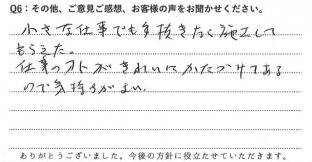 Q6：その他、ご意見ご感想、お客様の声をお聞かせください。
小さな仕事でも手抜きなく施工して
もらえた。
仕事のアトがきれいにかたづけてある
ので気持ちがよい。
ありがとうございました。今後の方針に役立たせていただきます。